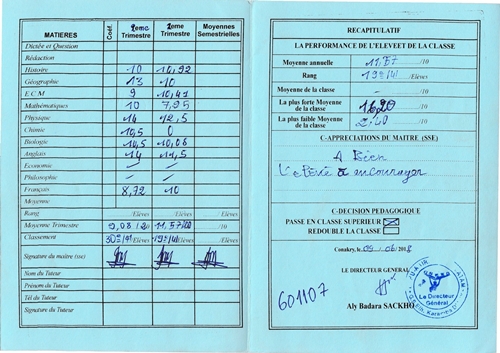 MATIERES Coef. 2eme Trimestre 2eme Trimestre Moyennes Semestrielles
Dictée et Question
Rédaction
Histoire 10 10,92
Géographie 13 10
E C M 9 10,41
Mathématiques 10 7,95
Physique 14 12,5
Chimie 10,5 0
Biologie 10,5 10,06
Anglais 14 11,5
Economie
Philosophie
Français 8,72 10
Moyenne
Rang /Elèves /Elèves /Elèves
Moyenne Trimestre 9,08/20 11,57/20 /10
Classement 30e/41 Elèves 19e/41 Elèves /Elèves
Signature du maître (sse)
Nom du Tuteur
Prénom du Tuteur
Tél du Tuteur
Signature du Tuteur
RECAPITULATIF
LA PERFORMANCE DE L'ELEVEET DE LA CLASSE
Moyenne annuelle 11,57 /10
Rang 19e/41 /Elèves
Moyenne de la classe - /10
La plus forte Moyenne de la classe 16,20
La plus faible Moyenne de la classe /10
C-APPRECIATIONS DU MAITRE (SSE)
A Bien
L'elève a encourager
C-DECISION PEDAGOGIQUE
PASSE EN CLASSE SUPERIEUR
REDOUBLE LA CLASSE
Conakry, le 09 06 2018
LE DIRECTEUR GENERAL
Le Directeur
Général
601107
Aly Badara SACKHO